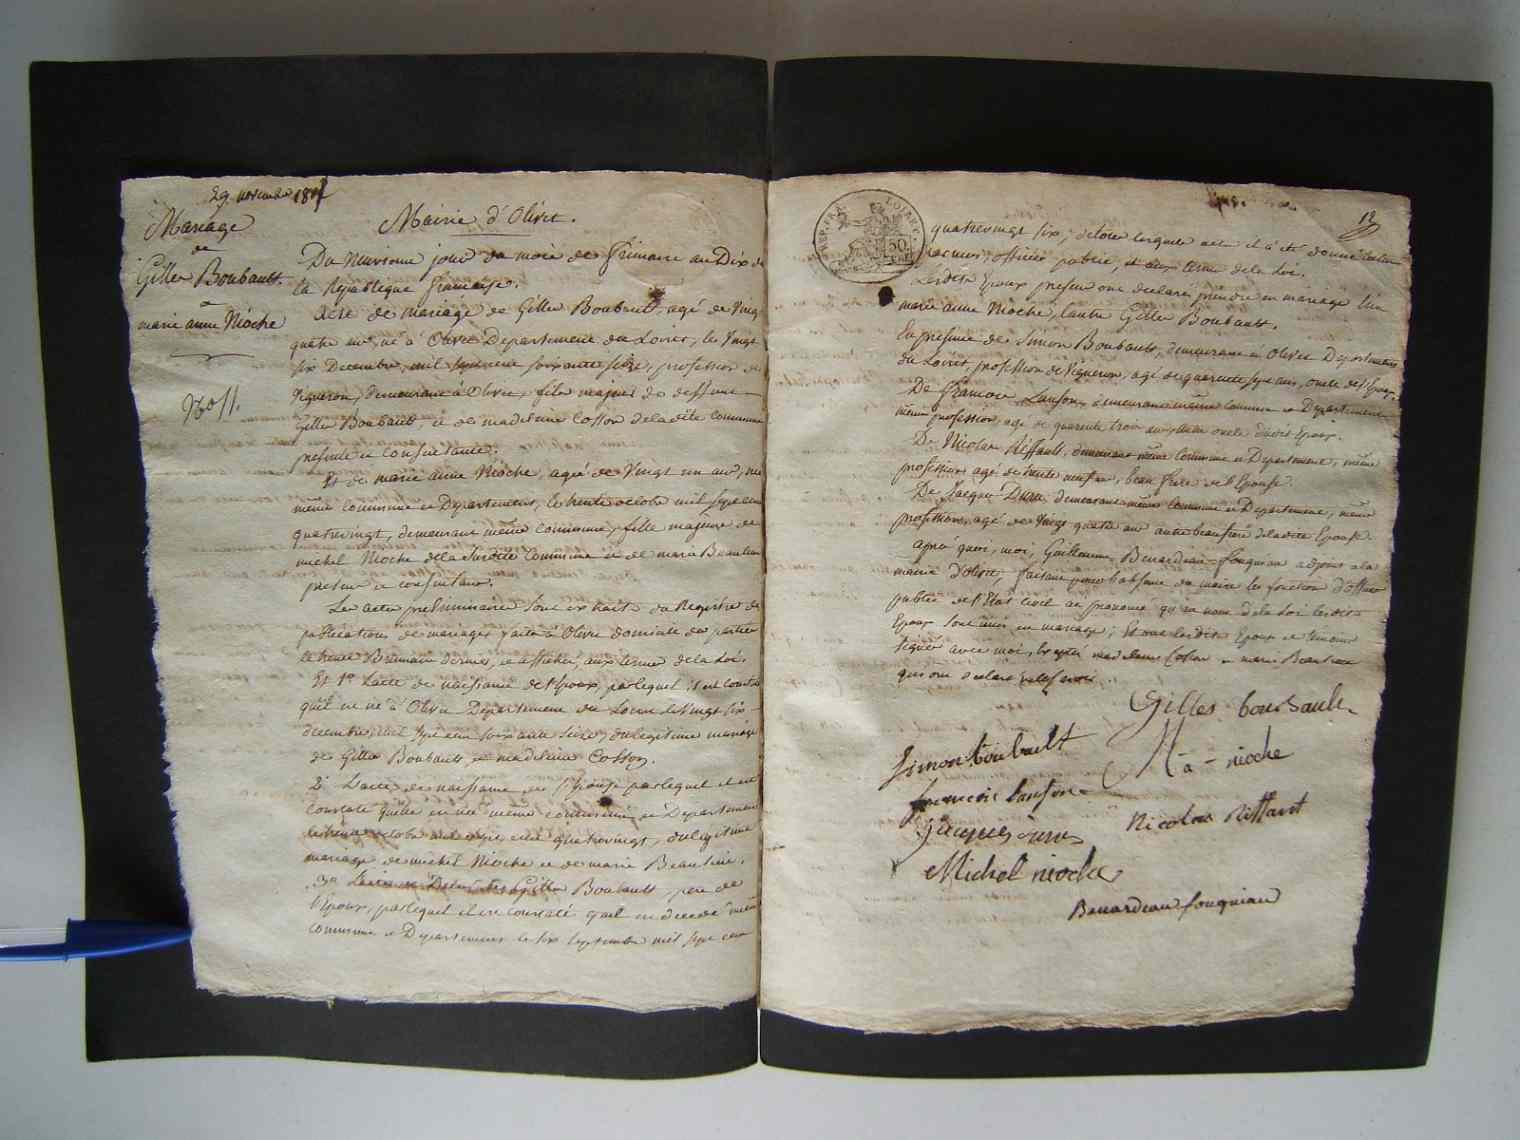 29 novembre 1801
Mariage
de
Gilles Boubault
a
marie anne Nioche
Mairie d'Olivet.
Du Neuvieme jour du mois de frimaire an Dix de
la République française.
Acte de mariage de Gilles Boubault, agé de Vingt
quatre ans, né à Olivet Departement du Loiret, le Vingt
six Decembre, mil sept cent soixante seize, profession de
Vigneron, demeurant à Olivet, fils majeur de deffunt
Gilles Boubault, et de madeleine Cosson de la dite commune
presente et consentante.
Et de marie anne Nioche, agée de Vingt un ans, née
même commune et Departement, le trente octobre mil sept cent
quatrevingt, demeurant même commune, fille majeure de
michel Nioche de la Susdite Commune et de marie Beaulieu
present et consentans.
Les actes preliminaires sont extraits du Registre de
publications de mariages faites à Olivet domicile des parties
le trente Brumaire dernier, et affichés, aux termes de la Loi.
Et 1° L'acte de naissance de l'Epoux, par lequel il est constaté
qu'il est né à Olivet Departement du Loiret le Vingt six
decembre, mil sept cent soixante seize, du legitime mariage
de Gilles Boubault et madeleine Cosson.
2° L'acte de naissance de l'Epouse par lequel il est
constaté qu'elle est née même commune et Departement
le trente octobre mil sept cent quatrevingt, du legitime
mariage de michel Nioche et de marie Beaulieu.
3° L'acte de Décès de Gilles Boubault, pere de
l'Epoux, par lequel il est constaté qu'il est decedé même
commune et Departement le six septembre mil sept cent
REP. FRA.
LOIRET
50
CENT
12
quatrevingt six, de tous lesquels actes il a été donné lecture
par moi, officier public, et aux termes de la Loi.
Lesdits Epoux presens ont declaré prendre en mariage l'un
marie anne Nioche, l'autre Gilles Boubault.
En presence de Simon Boubault, demeurant à Olivet Departement
du Loiret, profession de Vigneron, agé de quarente sept ans, oncle de l'Epoux,
De francois Lanson, demeurant même commune et Departement
même profession, agé de quarente trois ans, oncle dudit Epoux.
De Nicolas Riffault, demeurant même commune et Departement, même
profession agé de trente neuf ans, beau frere de l'Epouse.
De Jacques demeurant même commune et Departement, même
profession, agé de Vingt quatre ans autre beaufrere de la dite Epouse.
Après quoi, moi, Guillaume Benardeau-fouqueau adjoint a la
mairie d'Olivet, faisant pour l'absence du maire les fonctions d'officier
public de l'Etat civil ai prononcé qu'au nom de la Loi lesdits
Epoux sont unis en mariage; Et ont lesdits Epoux et temoins
signés avec moi, excepté madeleine Cosson et marie Beaulieu
qui ont declaré ne le savoir.
Gilles boubault
Simon boubault
M a - nioche
francois lanson
Nicolas Riffault
Jacques
Michel nioche
Benardeau fouqueau